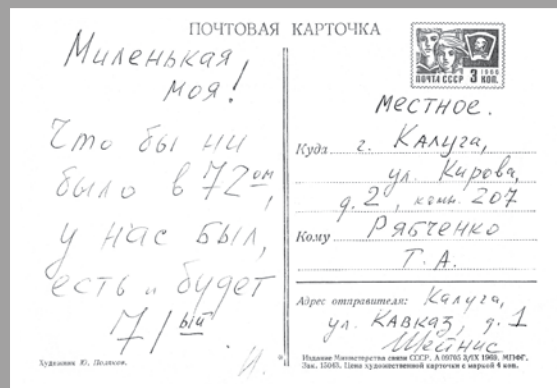 ПОЧТОВАЯ КАРТОЧКА
Миленькая
моя!
Что бы ни
было в 72ом,
у нас был,
есть и будет
71ый
И.
Художник Ю. Поляков.
1966
ПОЧТА СССР 3 КОП.
местное.
Куда г. Калуга,
ул. Кирова,
д. 2, комн. 207
Кому Рябченко
Т. А.
Адрес отправителя: Калуга,
ул. КАВКАЗ, д. 1
Шейнис
Издание Министерства связи СССР. А 09705 3/IX 1969. МПФГ.
Зак. 15045. Цена художественной карточки с маркой 4 коп.